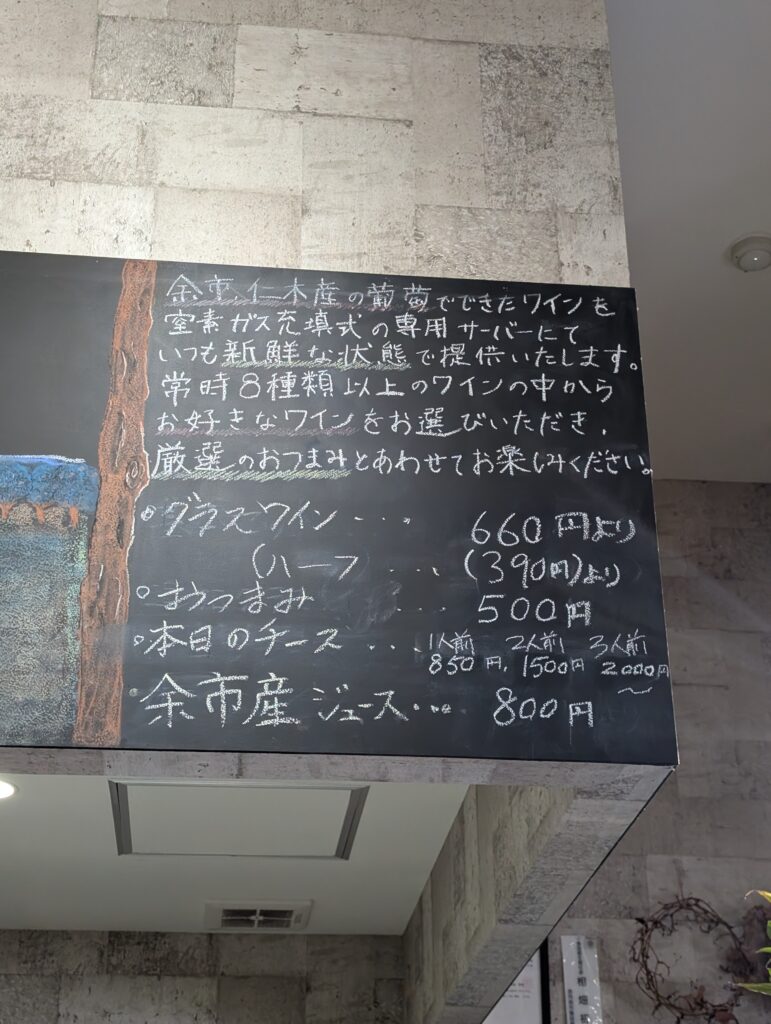 余市、仁木産の葡萄でできたワインを
窒素ガス充填式の専用サーバーにて
いつも新鮮な状態で提供いたします。
常時8種類以上のワインの中から
お好きなワインをお選びいただき、
厳選のおつまみとあわせてお楽しみください。
◦グラスワイン・・・ 660円より
(ハーフ ・・・(390円)より
◦おつまみ ・・・ 500円
◦本日のチーズ・・・1人前 2人前 3人前
850円、1500円 2000円〜
◦余市産ジュース・・・ 800円
相畑